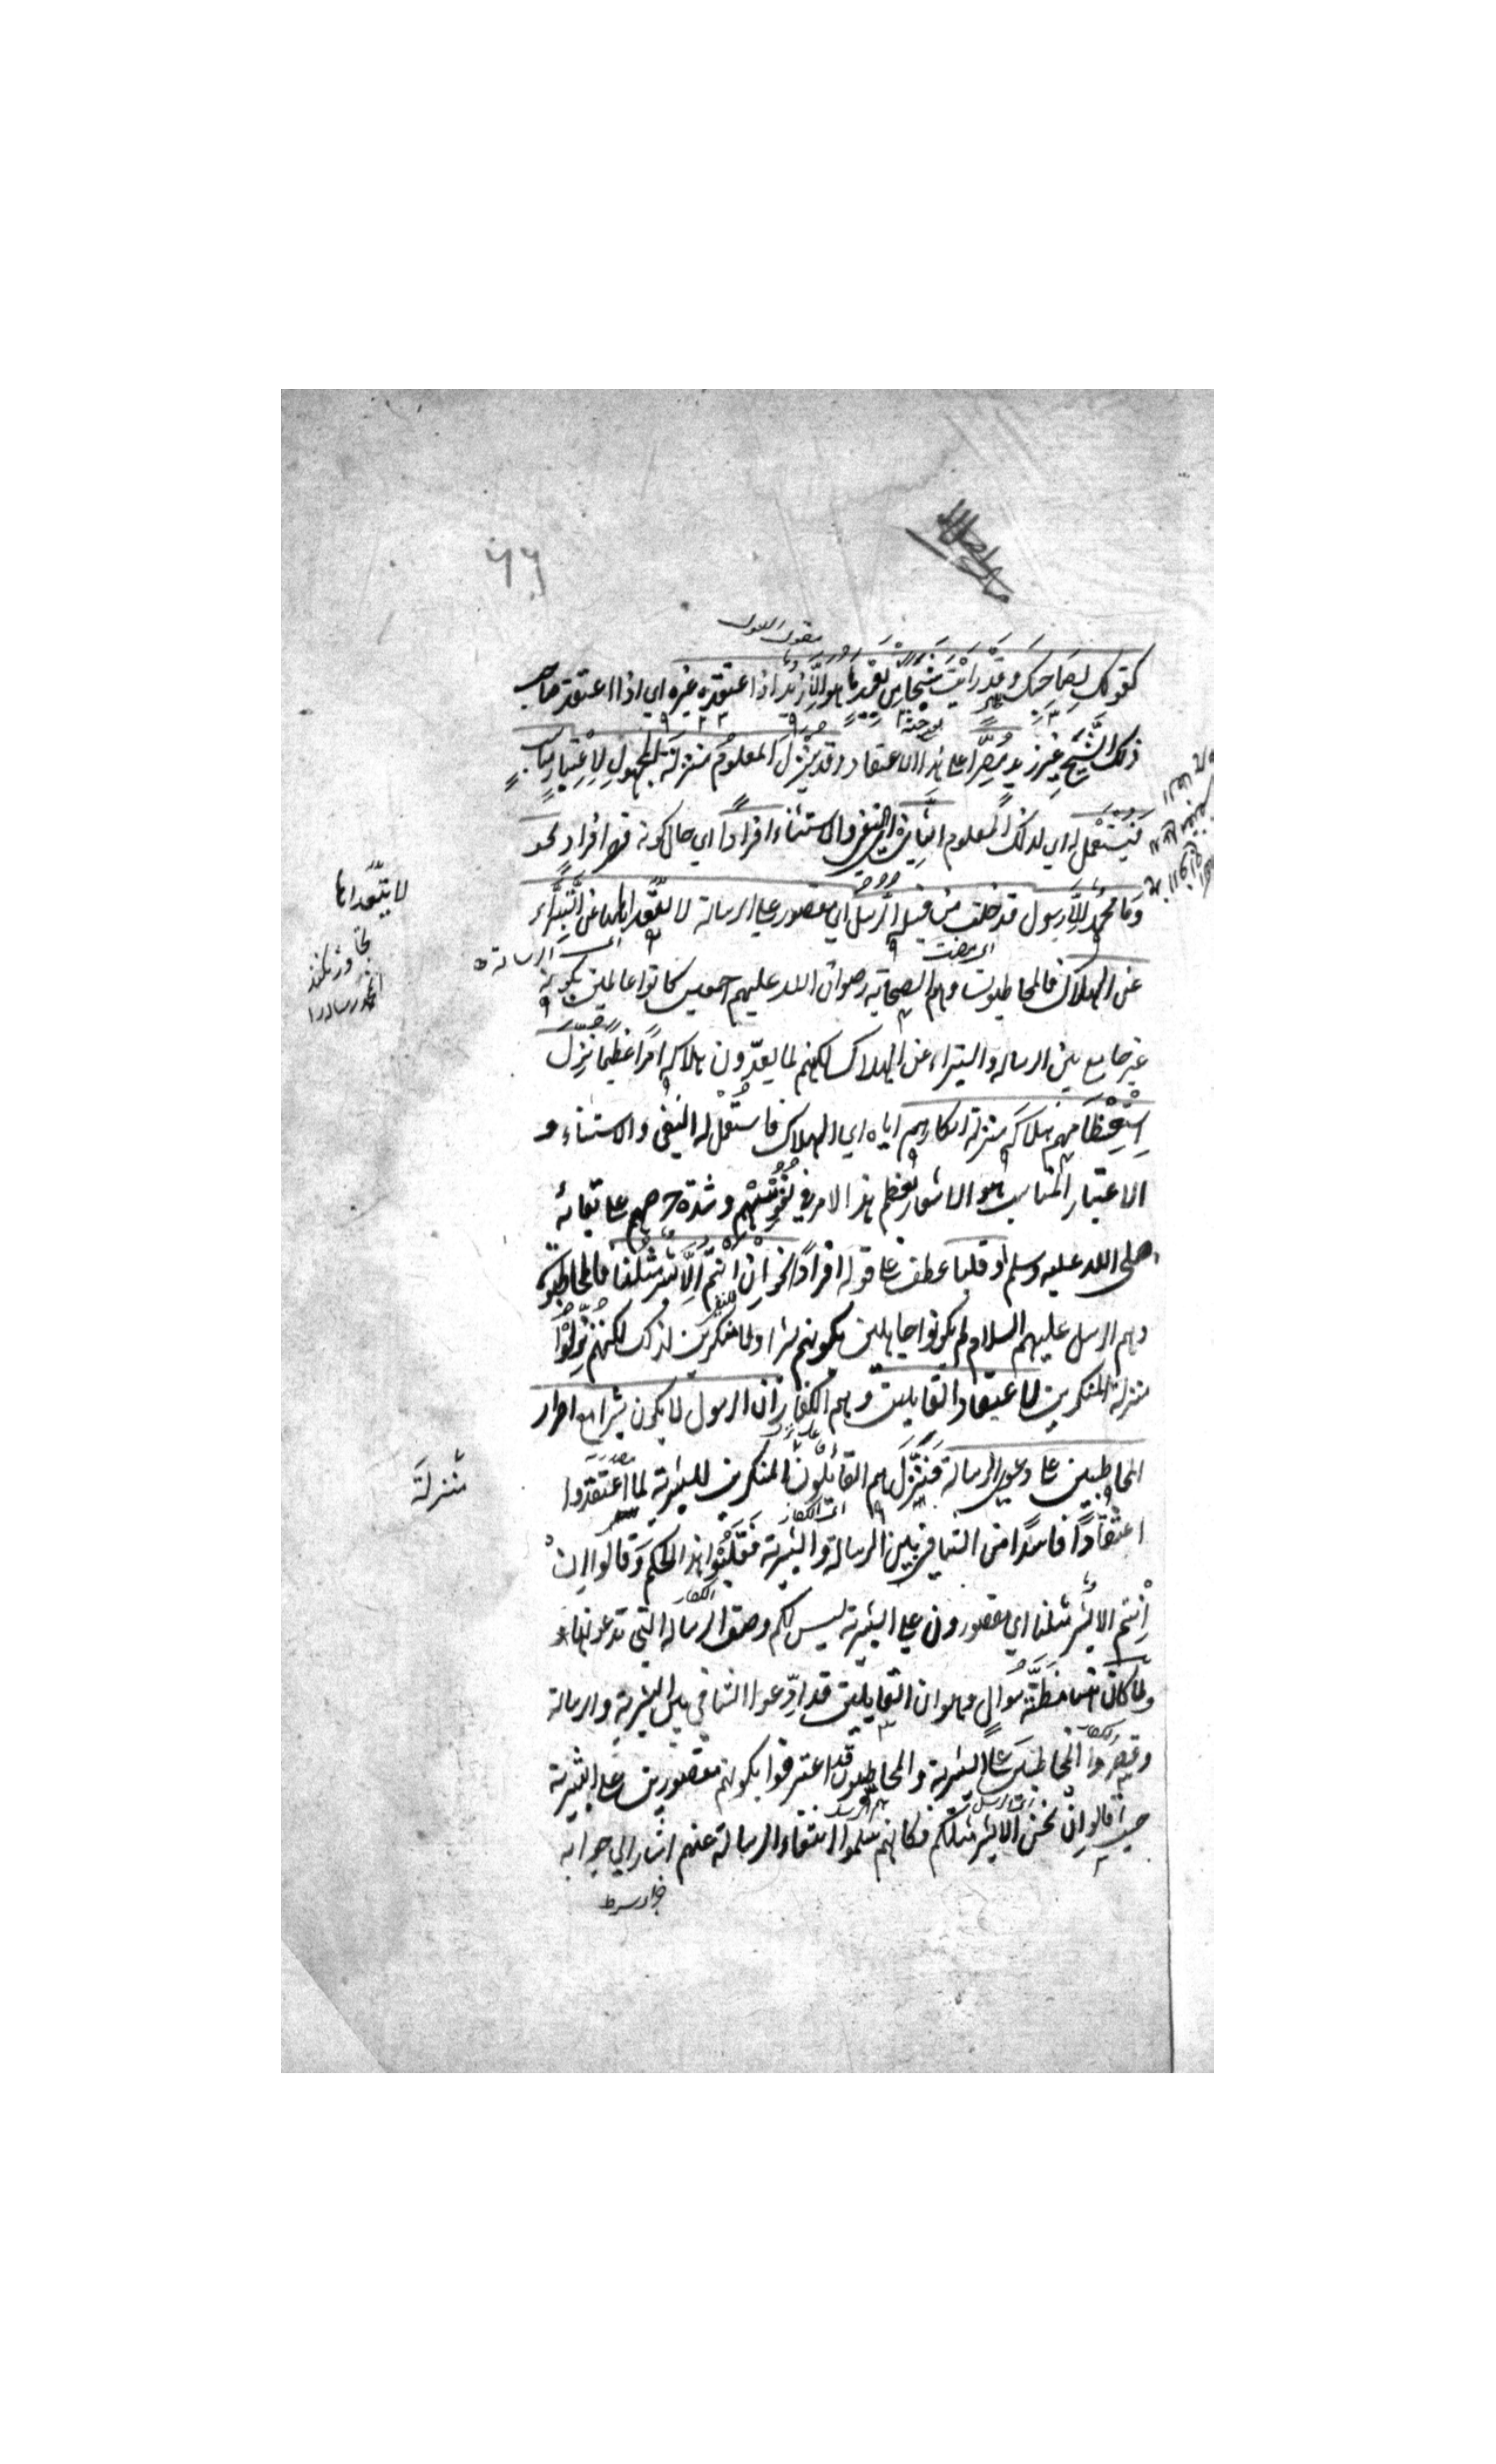 مقول القول
كقولك لصاحبك وقد رأيت شبحا من بعيد ما هو الا زيد اذا اعتقده غيره اي اذا اعتقد صاحبك
ذلك الشبح غير زيد مصرا على هذا الاعتقاد وقد ينزل المعلوم منزلة المجهول لاعتبار مناسب
فيستعمل له اي لذلك المعلوم الثاني اي النفي والاستثناء افرادا اي حال كونه قصر افراد نحو
وما محمد الا رسول قد خلت من قبله الرسل اي مقصور على الرسالة لا يتعداها الى التبراء
اى الرسالة
اى مضت
عن الهلاك فالمخاطبون وهم الصحابة رضوان الله عليهم اجمعين كانوا عالمين بكونه
غير جامع بين الرسالة والتبراء عن الهلاك لكنهم لما يعدون هلاكه امرا عظيما نزل
استعظامهم هلاكه منزلة انكارهم اياه اي الهلاك فاستعمل له النفي والاستثناء و
الاعتبار المناسب هو الاشعار بعظم هذا الامر في نفوسهم وشدة حرصهم على بقائه
صلى الله عليه وسلم او قلبا عطف على قوله افرادا نحو ان انتم الا بشر مثلنا فالمخاطبون
وهم الرسل عليهم السلام لم يكونوا جاهلين بكونهم بشرا ولا منكرين لذلك لكنهم نزلوا
منزلة المنكرين لاعتقاد القايلين وهم الكفار ان الرسول لا يكون بشرا مع اصرار
المخاطبين على دعوى الرسالة فنزلهم القائلون المنكرين للبشرية لما اعتقدوا
اى الكفار
اعتقادا فاسدا من التنافي بين الرسالة والبشرية فقلبوا هذا الحكم وقالوا ان
الكفار
انتم الا بشر مثلنا اي مقصورون على البشرية ليس لكم وصف الرسالة التي تدعونها
ولما كان هنا مظنة سوال وهو ان القايلين قد ادعوا التنافي بين البشرية والرسالة
الكفار
وقصروا المخاطبين على البشرية والمخاطبون قد اعترفوا بكونهم مقصورين على البشرية
حيث قالوا ان نحن الا بشر مثلكم فكانهم سلموا انتفاء الرسالة عنهم اشار الى جوابه
لا يتعداها
تجاوز نكند
منزلة